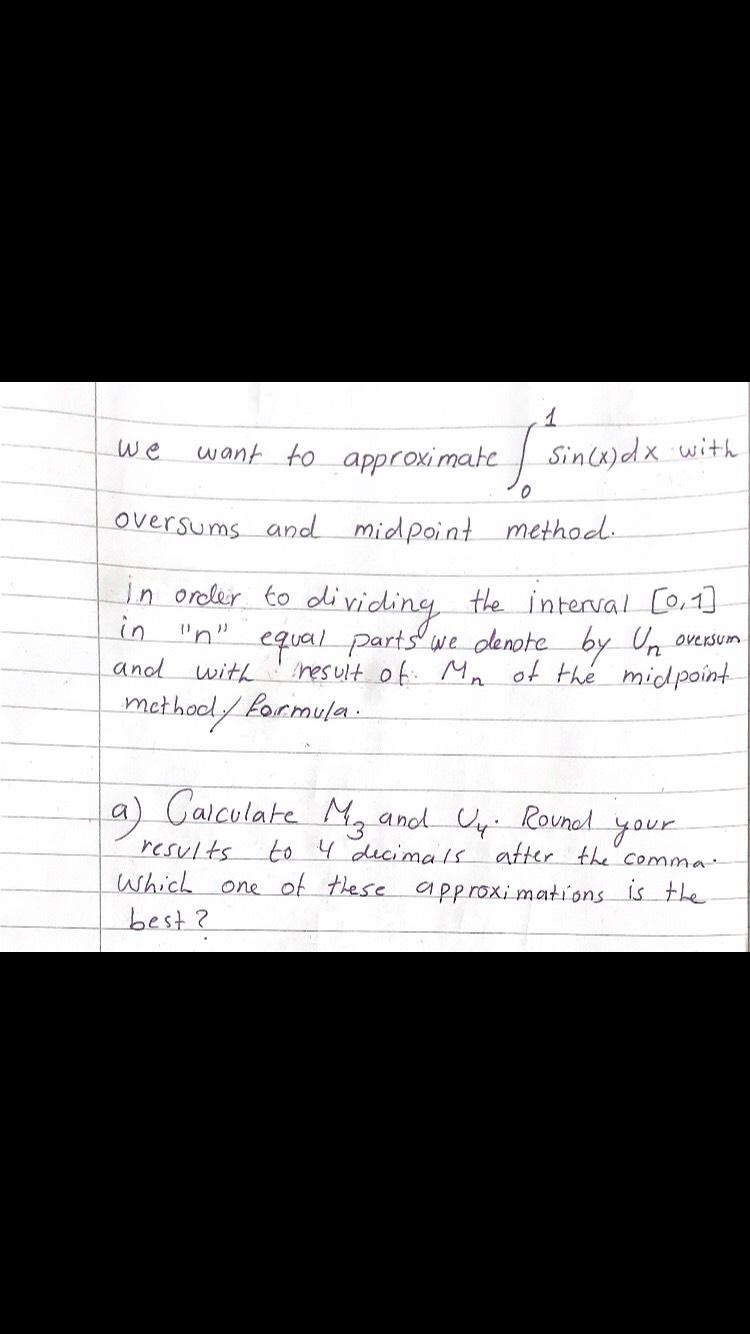 we want to approximate ∫₀¹ sin(x)dx with
oversums and midpoint method.
in order to dividing the interval [0,1]
in "n" equal parts we denote by Un oversum
and with result of Mn of the midpoint
method/formula.
a) Calculate M₃ and U₄. Round your
results to 4 decimals after the comma.
Which one of these approximations is the
best?